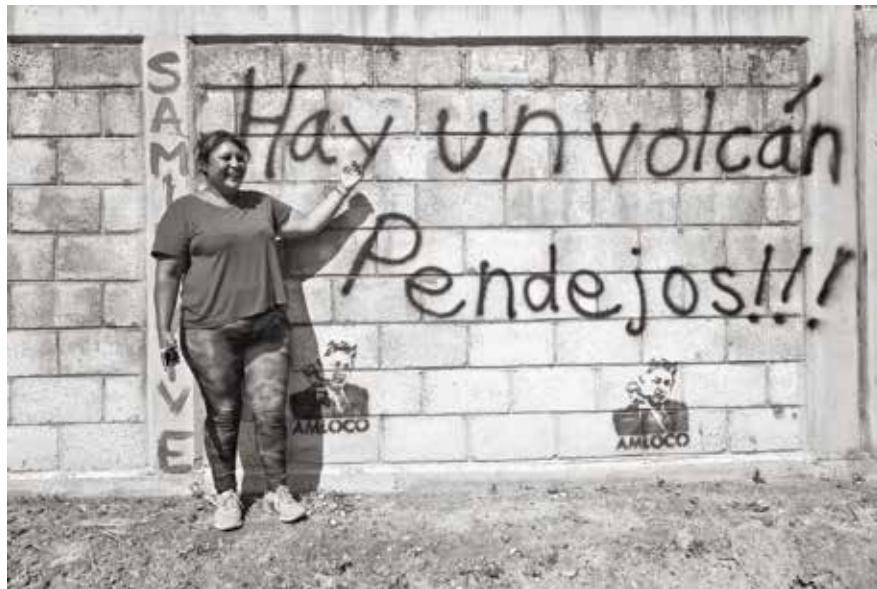 SAMI VIVE
Hay un volcán
Pendejos!!!
AMLOCO
AMLOCO